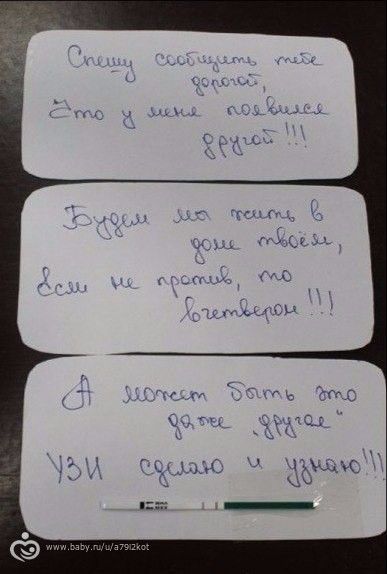 Спешу сообщить тебе
дорогой,
Что у меня появился
другой!!!
Будем мы жить в
доме твоём,
Если не против, то
вчетвером!!!
А может быть это
даже „другая“
УЗИ сделаю и узнаю!!!
www.baby.ru/u/a79i2kot